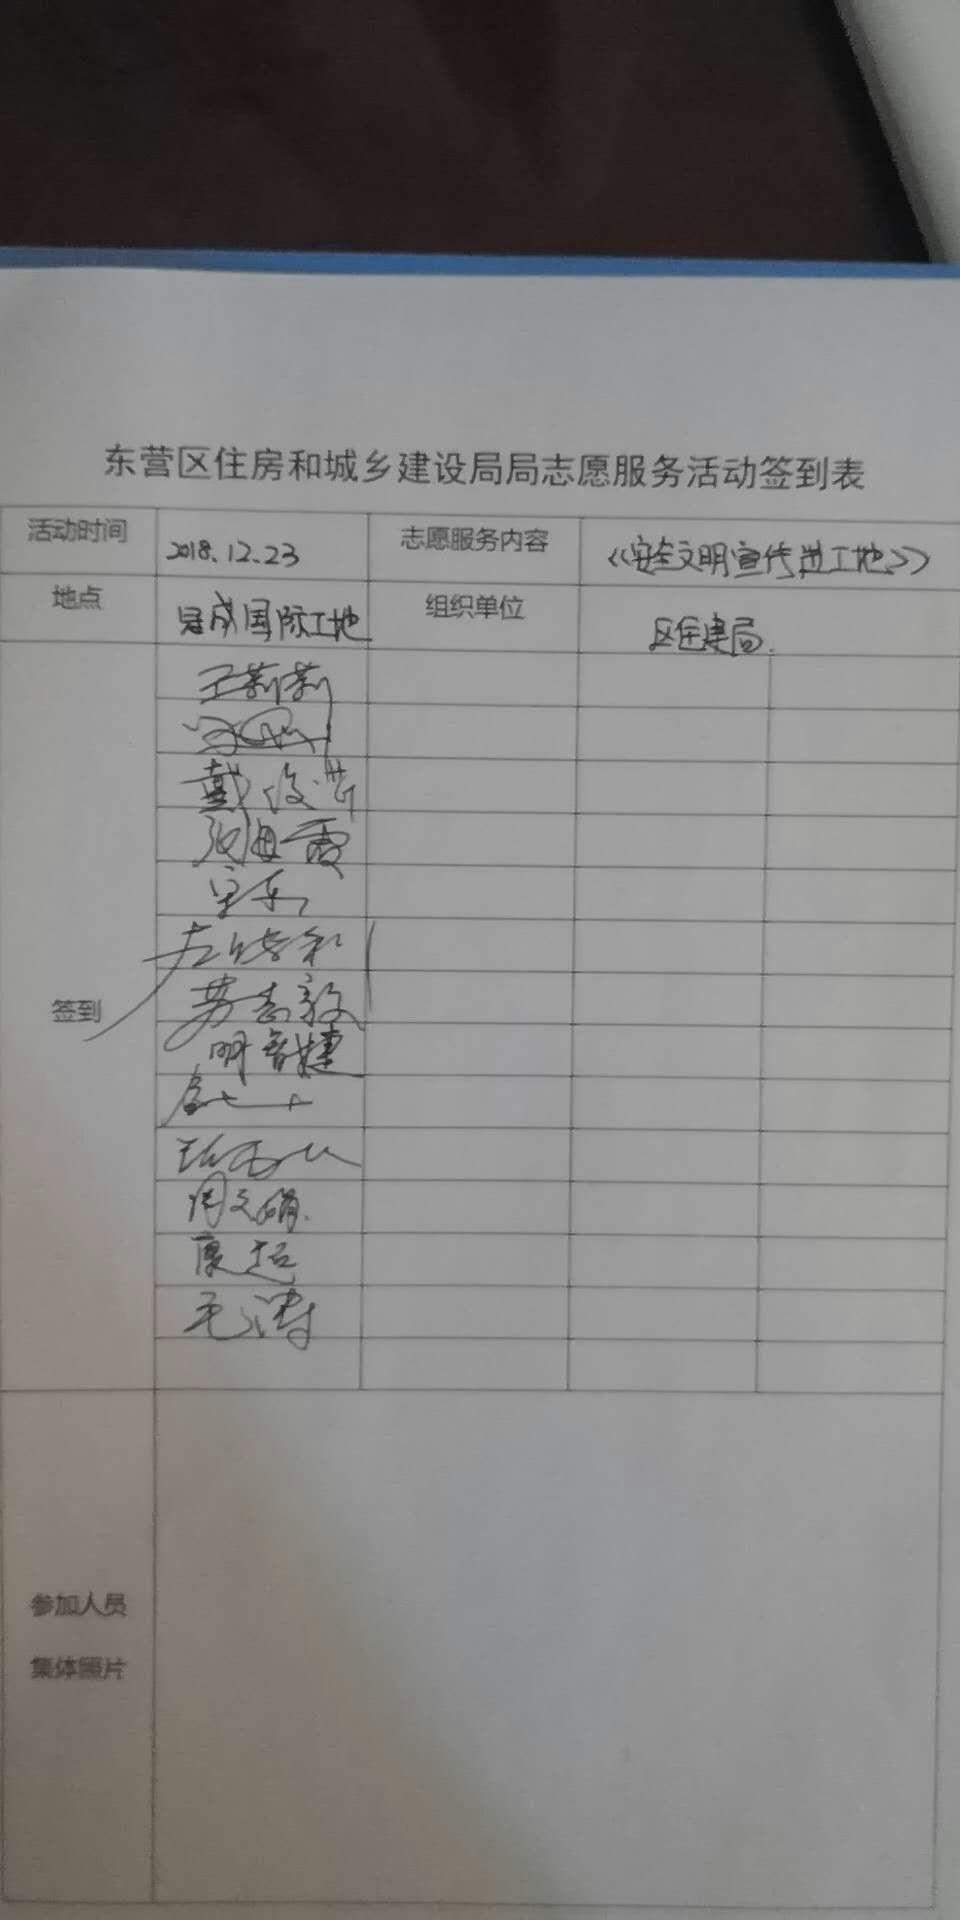 东营区住房和城乡建设局局志愿服务活动签到表
活动时间 2018.12.23 志愿服务内容 《安全文明宣传进工地》
地点 冠成国际工地 组织单位 区住建局.
王莉莉
戴俊芳
张海霞
苏志毅
明智捷
签到
周文娟.
康超
毛涛
参加人员
集体照片